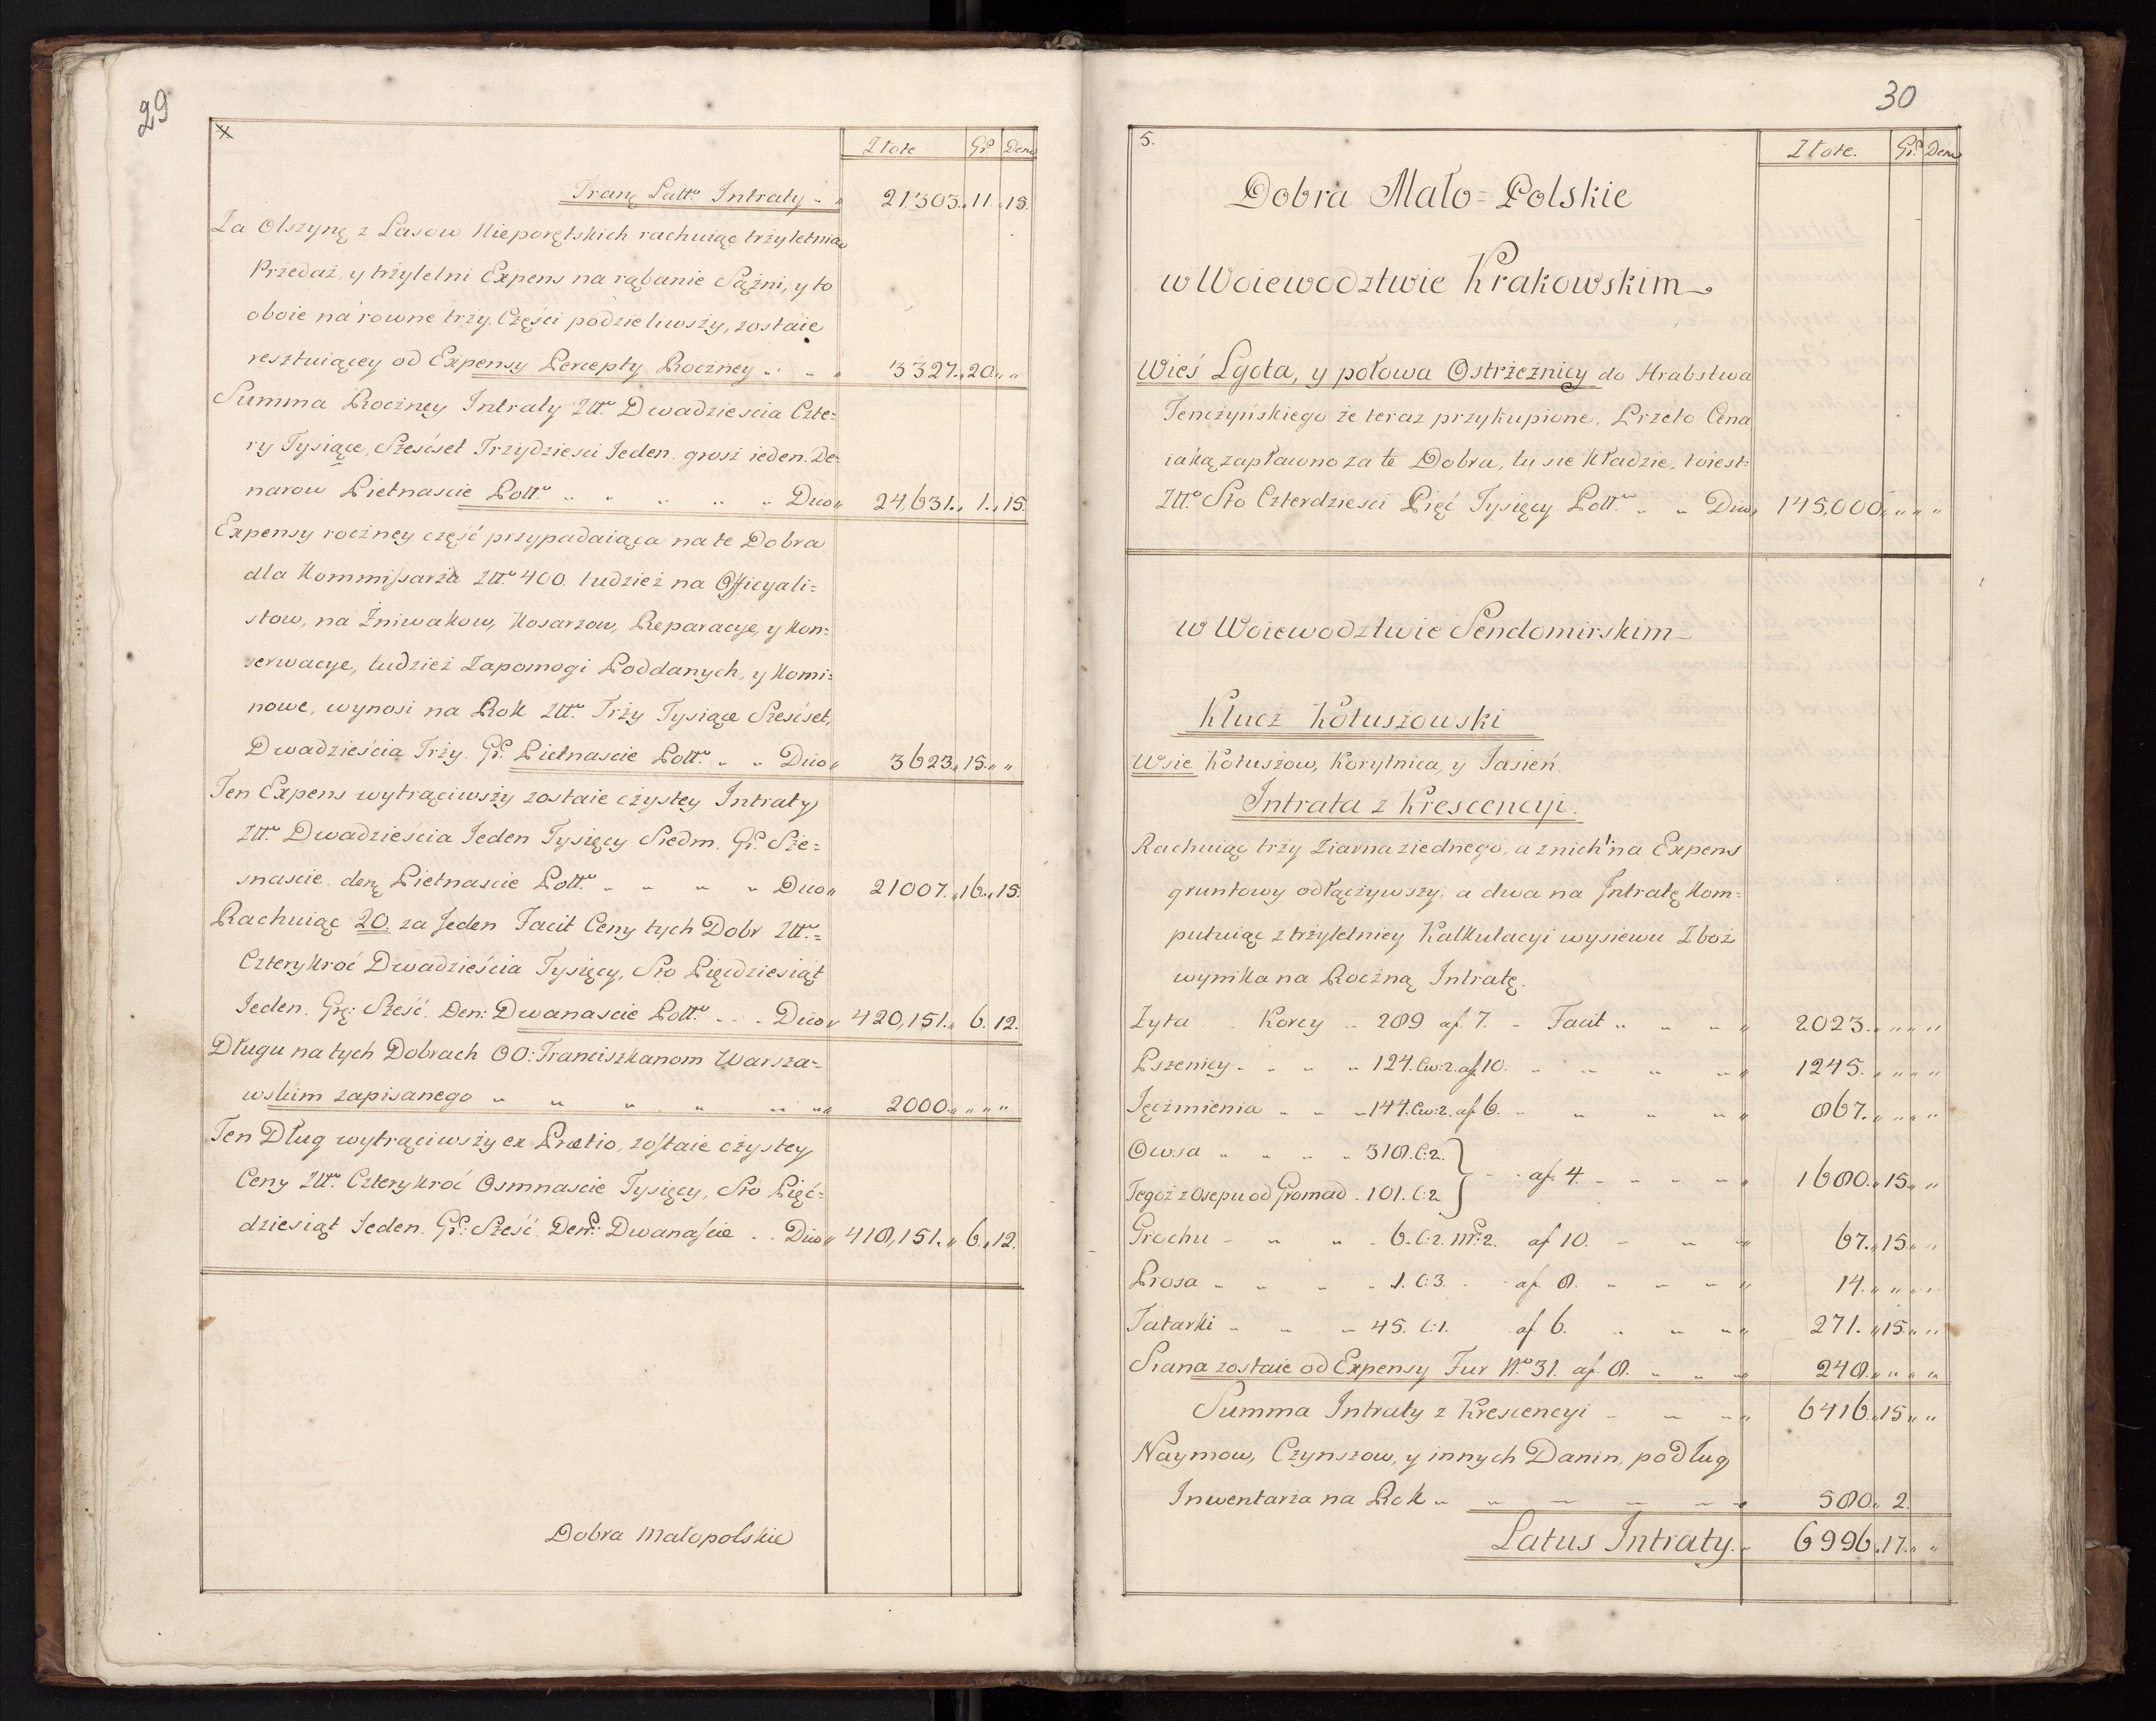 29
4
Złote Gr. Den.
Tranę Latt. Intraty „ „ 21303„ 11„ 15.
Za Olszynę z Lasow Nieporętskich rachuiąc trzyletnia
Przedaż, y trzyletni Expens na rąbanie Sążni, y to
oboie na rowne trzy Częsci podzieliwszy, zostaie
resztuiącey od Expensy Percepty Roczney „ „ „ 3327„ 20„ „
Summa Roczney Intraty Złł. Dwadziescia Czte=
ry Tysiące, Szescset Trzydziesci Jeden. grosz ieden. De=
narow Pietnascie Poll. „ „ „ „ „ Dico„ 24,631„ 1„ 15.
Expensy roczney część przypadaiąca na te Dobra
dla Kommissarza Złł. 400. tudzież na Officyali=
stow, na Żniwakow, Kosarzow, Reparacye, y Kon=
serwacye, tudzież Zapomogi Poddanych, y Komi=
nowe, wynosi na Rok Złł. Trzy Tysiące Szescset,
Dwadzieścia Trzy. Gr. Pietnascie Poll. „ „ Dico„ 3623„ 15„ „
Ten Expens wytrąciwszy zostaie czystey Intraty
Złł. Dwadzieścia Jeden Tysięcy Siedm. Gr. Sze=
snascie. denę Pietnascie Poll. „ „ „ „ Dico„ 21007„ 16„ 15.
Rachuiąc 20. za Jeden Facit Ceny tych Dobr Złł.=
Czterykroć Dwadzieścia Tysięcy, Sto Pięcdziesiąt
Jeden. Grę: Szesć. Den: Dwanascie Poll. . . . Dico„ 420,151„ 6. 12.
Długu na tych Dobrach OO: Franciszkanom Warsza=
wskim zapisanego „ „ „ „ „ „ 2000„ „ „
Ten Dług wytrąciwszy ex Prætio, zostaie czystey
Ceny Złł. Czterykroć Osmnascie Tysięcy, Sto Pięć=
dziesiąt Jeden. Gr. Szesć. Den: Dwanascie . . Dico„ 418,151„ 6„ 12.
Dobra Małopolskie
30
5.
Złote. Gr. Den.
Dobra Mało=Polskie
w Woiewodztwie Krakowskim
Wieś Lgota, y połowa Ostrzeżnicy do Hrabstwa
Tenczyńskiego że teraz przykupione. Przeto Cena
iaką zapłacono za te Dobra, tu sie kładzie, to iest:
Złł. Sto Czterdziesci Pięć Tysięcy Poll. „ „ Dico„ 145,000„ „ „
w Woiewodztwie Sendomirskim
Klucz Kotuszowski
Wsie Kotuszow, Korytnica, y Jasień.
Intrata z Krescencyi.
Rachuiąc trzy Ziarna z iednego, a z nich 1. na Expens
gruntowy odłączywszy, a dwa na Intratę Kom=
putuiąc z trzyletniey Kalkulacyi wysiewu Zboż
wynika na Roczną Intratę.
Zyta . . Korcy „ 289 af 7. „ Facit „ „ „ „ 2023„ „ „
Pszenicy „ „ „ „ 124. Cw: 2. af 10. „ „ „ „ 1245. „ „ „
Jęczmienia „ „ „ 144. Cw: 2. af 6. „ „ „ „ 867. „ „ „
Owsa „ „ „ „ 318. C: 2.
Tegoż z Osepu od Gromad . 101. C: 2 } „ af 4. „ „ „ „ 1680„ 15„ „
Grochu „ „ „ „ 6. C: 2. mr: 2. af 10. „ „ „ 67„ 15„ „
Prosa „ „ „ „ 1. C: 3. . af 8. „ „ „ „ 14. „ „ „
Tatarki „ „ „ 45. C: 1. af 6. „ „ „ 271. „ 15„ „
Siana zostaie od Expensy Fur No 31. af 8. „ „ „ 248„ „ „
Summa Intraty z Krescencyi „ „ „ 6416„ 15„ „
Naymow, Czynszow, y innych Danin, podług
Inwentarza na Rok „ „ „ „ „ 580„ 2.
Latus Intraty. „ 6996„ 17„ „